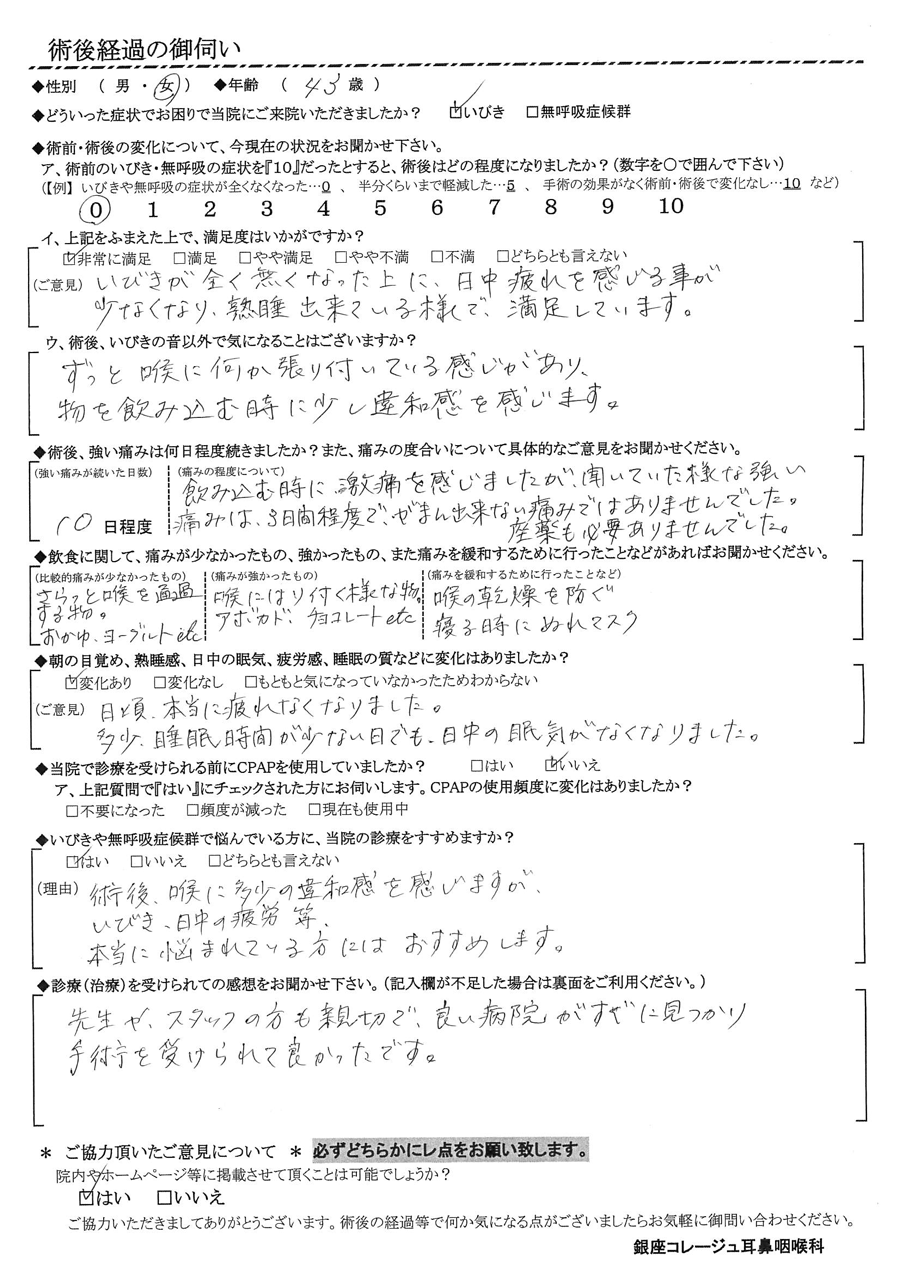 術後経過の御伺い
◆性別 ( 男 ・ 女 ) ◆年齢 ( 43 歳 )
◆どういった症状でお困りで当院にご来院いただきましたか? ☑いびき □無呼吸症候群
◆術前・術後の変化について、今現在の状況をお聞かせ下さい。
ア、術前のいびき・無呼吸の症状を『10』だったとすると、術後はどの程度になりましたか?(数字を○で囲んで下さい)
(【例】 いびきや無呼吸の症状が全くなくなった…0 、 半分くらいまで軽減した…5 、 手術の効果がなく術前・術後で変化なし…10 など)
0 1 2 3 4 5 6 7 8 9 10
イ、上記をふまえた上で、満足度はいかがですか?
☑非常に満足 □満足 □やや満足 □やや不満 □不満 □どちらとも言えない
(ご意見) いびきが全く無くなった上に、日中疲れを感じる事が
少なくなり、熟睡出来ている様で、満足しています。
ウ、術後、いびきの音以外で気になることはございますか?
ずっと喉に何か張り付いている感じがあり、
物を飲み込む時に少し違和感を感じます。
◆術後、強い痛みは何日程度続きましたか?また、痛みの度合いについて具体的なご意見をお聞かせください。
(強い痛みが続いた日数) (痛みの程度について)
飲み込む時に激痛を感じましたが、聞いていた様な強い
10 日程度 痛みは、3日間程度で、がまん出来ない痛みではありませんでした。
座薬も必要ありませんでした。
◆飲食に関して、痛みが少なかったもの、強かったもの、また痛みを緩和するために行ったことなどがあればお聞かせください。
(比較的痛みが少なかったもの) (痛みが強かったもの) (痛みを緩和するために行ったことなど)
さらっと喉を通過 喉にはり付く様な物。 喉の乾燥を防ぐ
する物。 アボカド、チョコレートetc 寝る時にぬれマスク
おかゆ、ヨーグルトetc
◆朝の目覚め、熟睡感、日中の眠気、疲労感、睡眠の質などに変化はありましたか?
☑変化あり □変化なし □もともと気になっていなかったためわからない
(ご意見) 日頃、本当に疲れなくなりました。
多少、睡眠時間が少ない日でも、日中の眠気がなくなりました。
◆当院で診療を受けられる前にCPAPを使用していましたか? □はい ☑いいえ
ア、上記質問で『はい』にチェックされた方にお伺いします。CPAPの使用頻度に変化はありましたか?
□不要になった □頻度が減った □現在も使用中
◆いびきや無呼吸症候群で悩んでいる方に、当院の診療をすすめますか?
☑はい □いいえ □どちらとも言えない
(理由) 術後、喉に多少の違和感を感じますが、
いびき、日中の疲労等、
本当に悩まれている方にはおすすめします。
◆診療(治療)を受けられての感想をお聞かせ下さい。(記入欄が不足した場合は裏面をご利用ください。)
先生や、スタッフの方も親切で、良い病院がすぐに見つかり
手術を受けられて良かったです。
* ご協力頂いたご意見について * 必ずどちらかにレ点をお願い致します。
院内やホームページ等に掲載させて頂くことは可能でしょうか?
☑はい □いいえ
ご協力いただきましてありがとうございます。術後の経過等で何か気になる点がございましたらお気軽に御問い合わせください。
銀座コレージュ耳鼻咽喉科